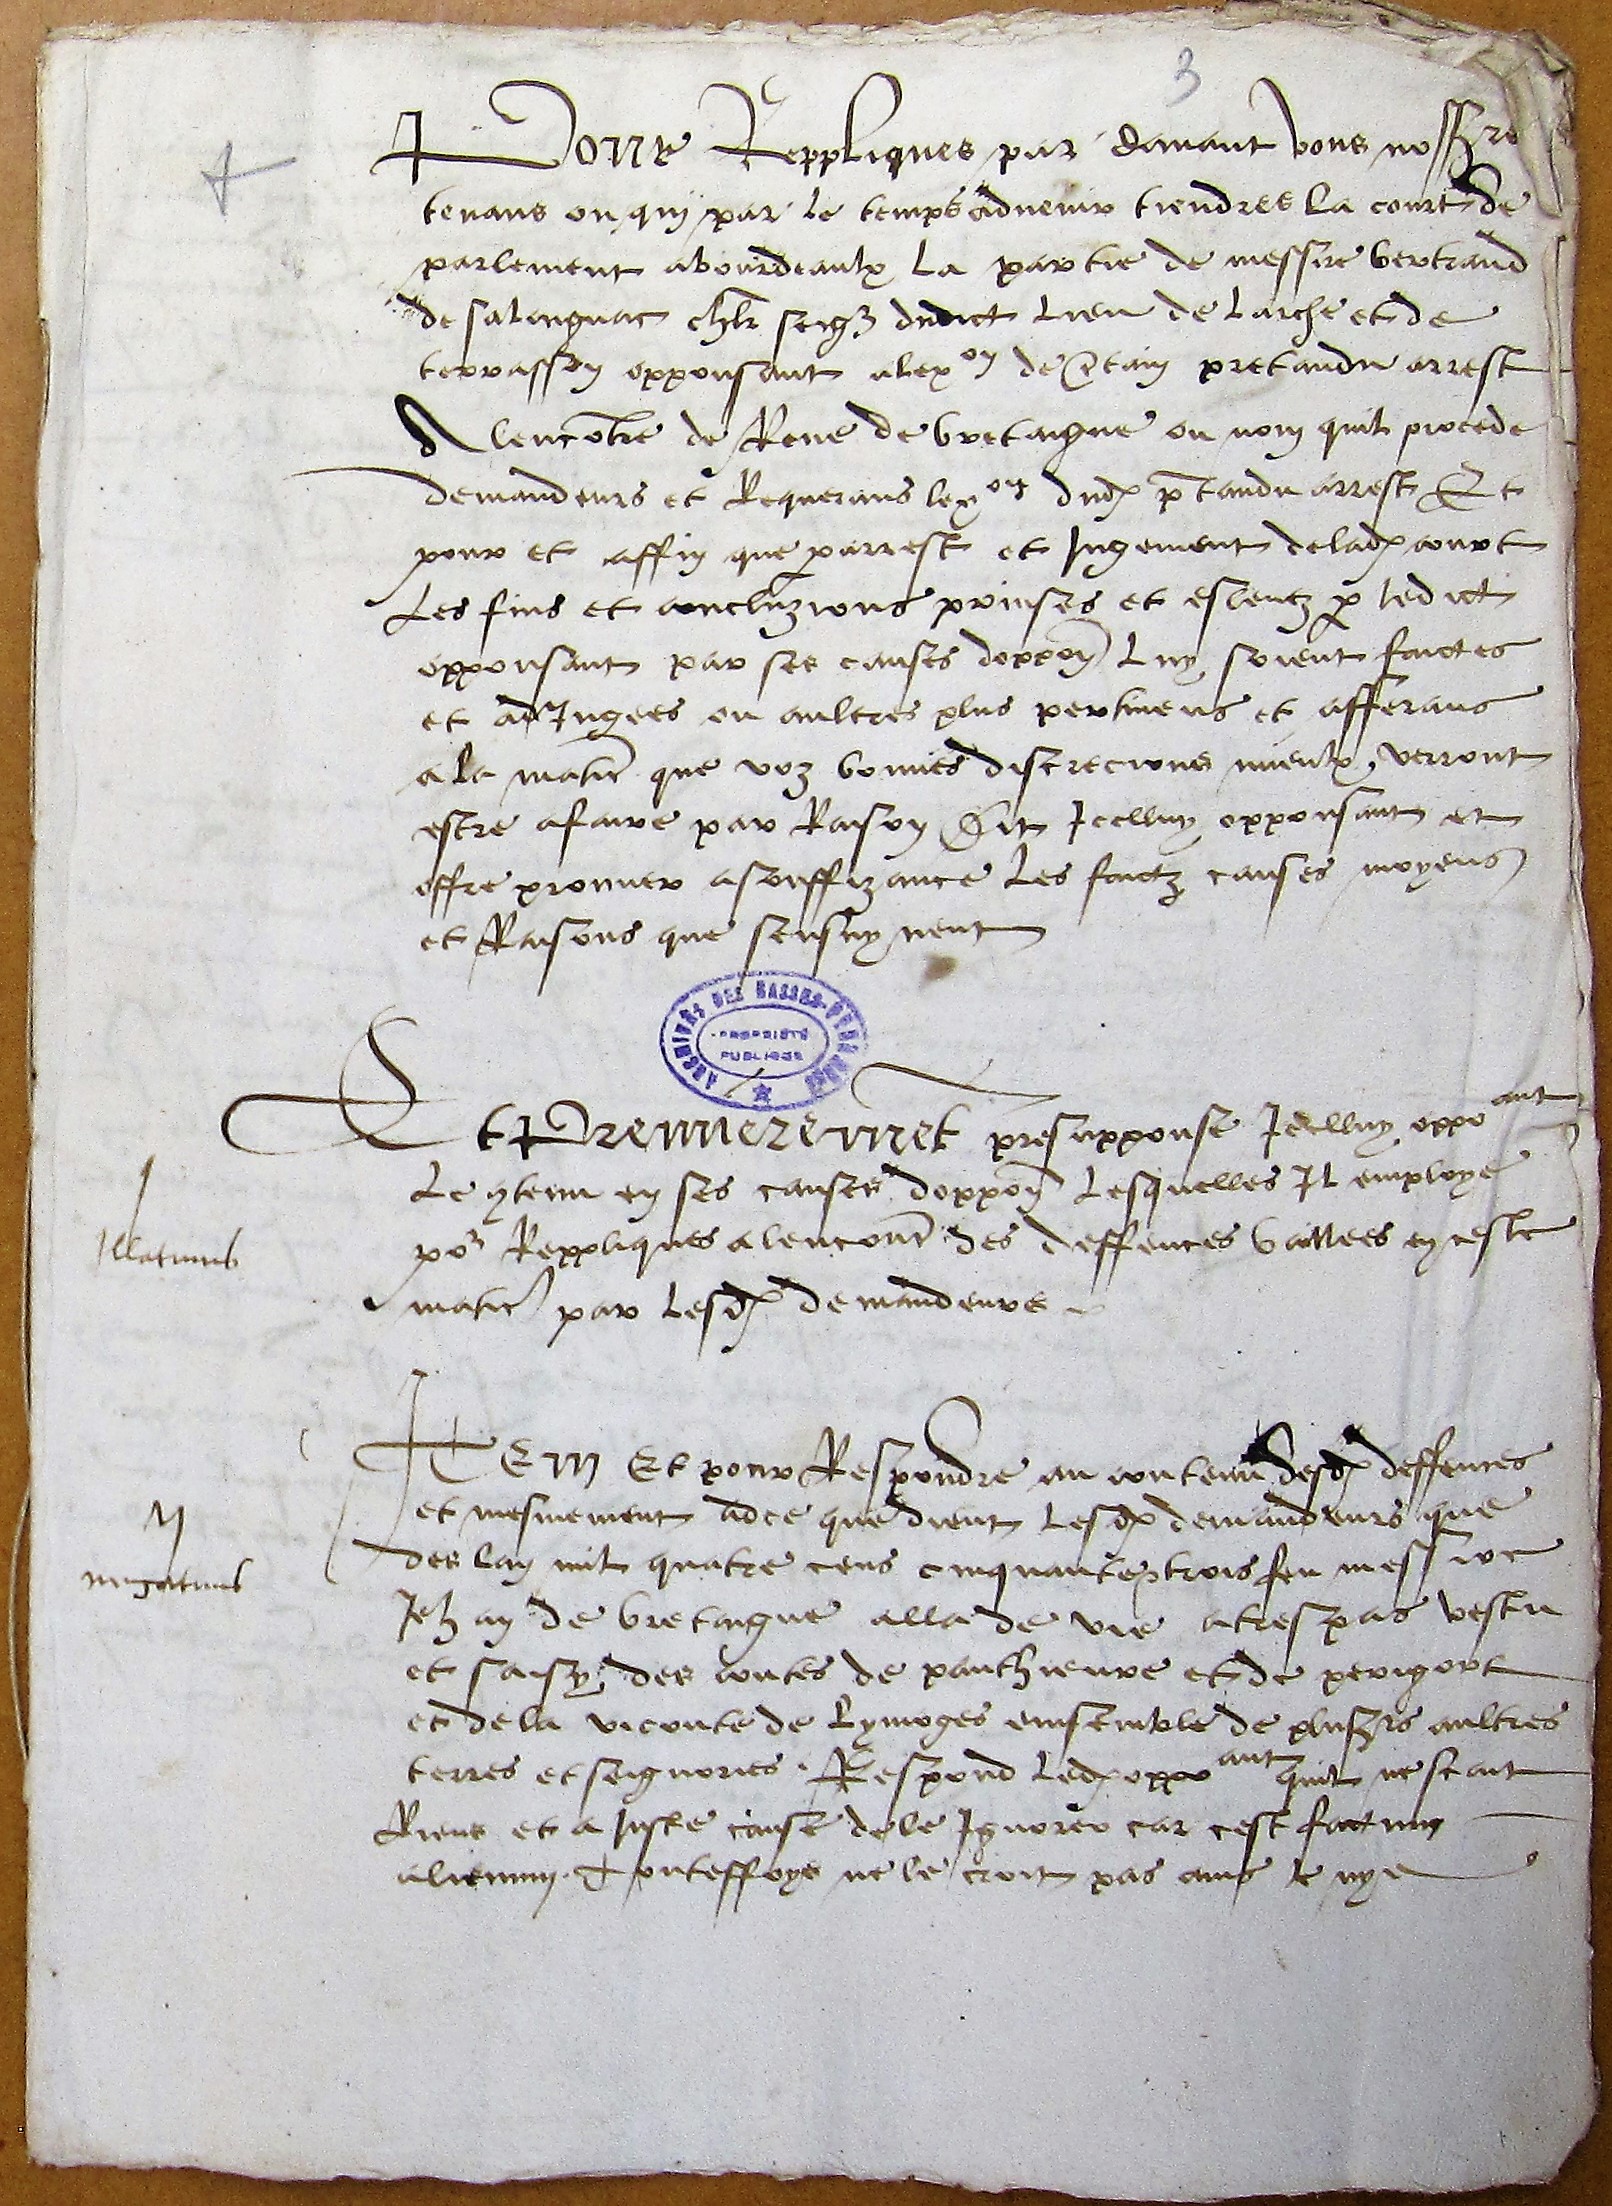 3
Donne Reppliques par davant vous noss^rs
tenans ou qui par le temps advenir tiendres la court de
parlement abourdeaulx la partie de messire bertrand
de salongnac chlr seigr dudict lieu de larche et de
terrasson opponsant alexon de certain pretandu arrest
Alencotre de Rene de bretaigne ou nom quil procede
demandeurs et Requerans lexon dud ptandu arrest Et
pour et affin que parrest et Jugement delad court
Les fins et concluzions prinses et esleutz p ledict
opponsant par ses causes doppon Luy soient faictes
et adJugees ou aultres plus pertinens et afferans
a la matie que voz bonnes discrecions mieulx verront
estre afaire par Raison Dit Jcelluy opponsant et
offre prouver asouffizance Les faictz causes moyens
et Raisons que sensuyvent
ARCHIVES DES BASSES-PYRÉNÉES
PROPRIÉTÉ
PUBLIQUE
Et Premieremet presuppouse Jcelluy oppoant
Le qtenu en ses causes doppon Lesquelles Jl employe
por Reppliques alencont des deffences baillees en ceste
matie par lesd demandeurs
Illatiuus
Jtem Et pour Respondre au contenu desd deffences
et mesmement adce que dient lesd demandeurs que
des lan mil quatre cens cinquante trois feu messire
Jehan de bretaigne alla de vie atrespas vestu
et saisy des contes de panthieuvre et de perigort
et dela viconte de Lymoges emsemble de plusrs aultres
terres et seignories. Respond led oppoant quil ne scait
Riens et a Juste cause dele Jgnorer car cest factum
alienum. Touteffoys ne le croit pas ains le nye
ij
negatiuus